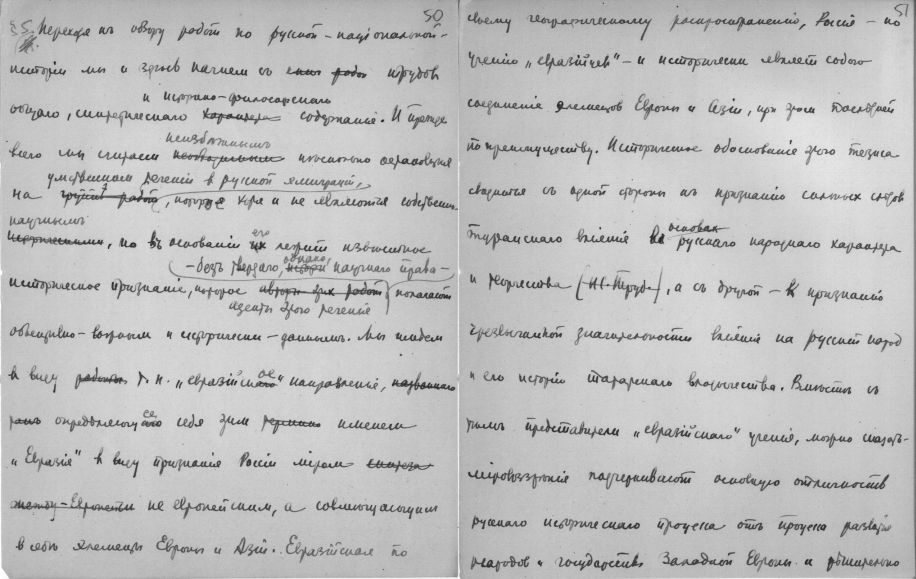 50
35. Переходя къ обзору работъ по русской – національной
исторіи мы и здѣсь начнемъ съ трудовъ
и историко-философскаго
общаго, синтетическаго характера содержанія. И прежде
неизбѣжнымъ
всего мы считаемъ нѣсколько остановиться
умственномъ теченіи в русской эмиграціи,
на группѣ работъ, которое хотя и не являются собственно
научнымъ
историческими, но въ основаніи его лежитъ извѣстное
– безъ твердаго, однако, научнаго права –
историческое признаніе, которое авторы этих работ полагаютъ
агенты этого теченія
объективно-вѣрнымъ и исторически-даннымъ. Мы имѣемъ
в виду работы т. н. "евразійское" направленіе, названнаго
опредѣляющее себя этим термином именемъ
"Евразія" в виду признанія Россіи міромъ синтеза
между – Европейс не европейским, а совмѣщающимъ
в себѣ элементы Европы и Азіи. Евразійская по
51
своему географическому распространенію, Россія – по
ученію "евразійцев" – и исторически являетъ собою
соединеніе элементовъ Европы и Азіи, при этом послѣдней
по преимуществу. Историческое обоснованіе этого тезиса
сводится съ одной стороны къ признанію сильных слѣдов
основах
туранскаго вліянія в русскаго народнаго характера
и творчества (Н. С. Труб.), а съ другой – к признанію
чрезвычайной значительности вліянія на русскій народ
и его исторіи татарскаго владычества. Вмѣстѣ съ
тѣмъ представители "евразійскаго" ученія, можно сказать –
міровоззрѣнія подчеркиваютъ основную отличность
русскаго историческаго процесса отъ процесса развитія
народов и государствъ Западной Европы и рѣшительно